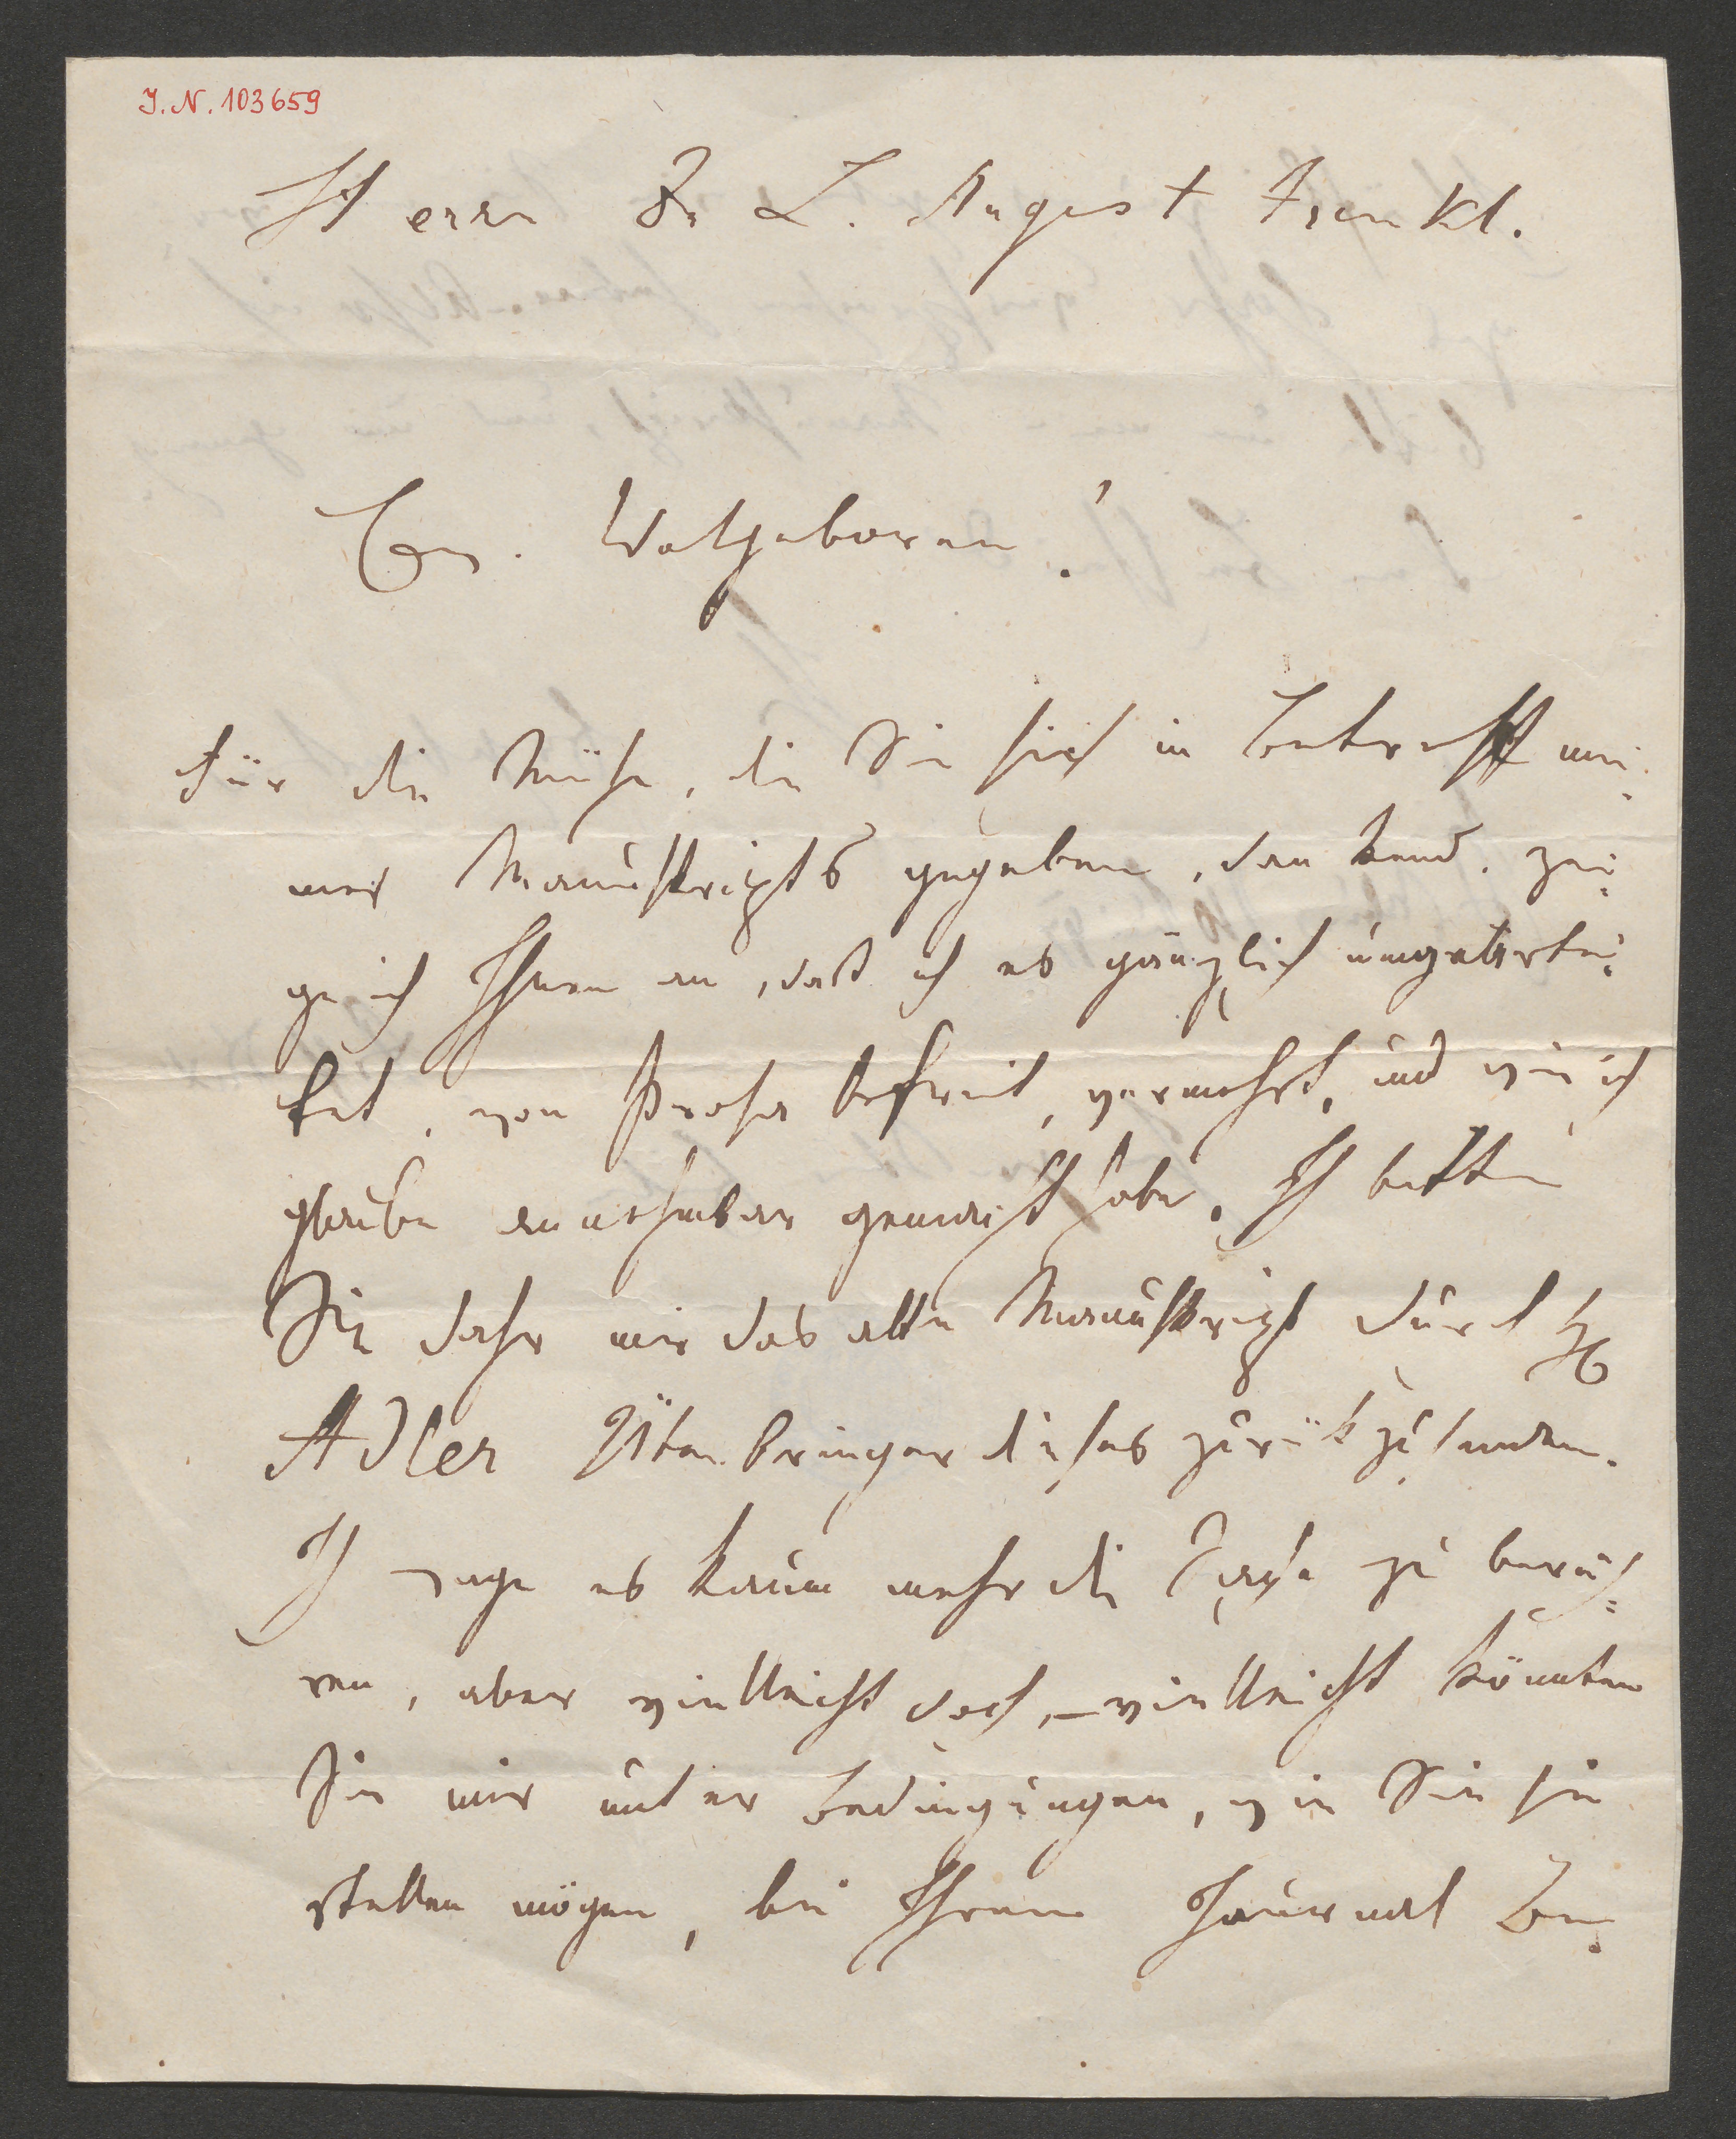 I.N. 103659
Herrn Dr L. August Frenkl.
Ew. Wolgeboren!
Für die Mühe, die Sie sich in Betreff mei-
nes Manuskripts gegeben, dankend. zei-
ge ich Ihnen an, daß ich es gänzlich umgearbei-
tet, von Prosa befreit, vermehrt, und wie ich
glaube annehmbar gemacht habe. Ich bitte
Sie daher mir das alte Manuskript durch H
Adler Überbringer dieses zurükzusenden.
Ich wage es kaum mehr die Sache zu berüh-
ren, aber vielleicht doch, – vielleicht könnten
Sie mir unter Bedingungen, wie Sie sie
stellen mögen, bei Ihrem Journal Be-